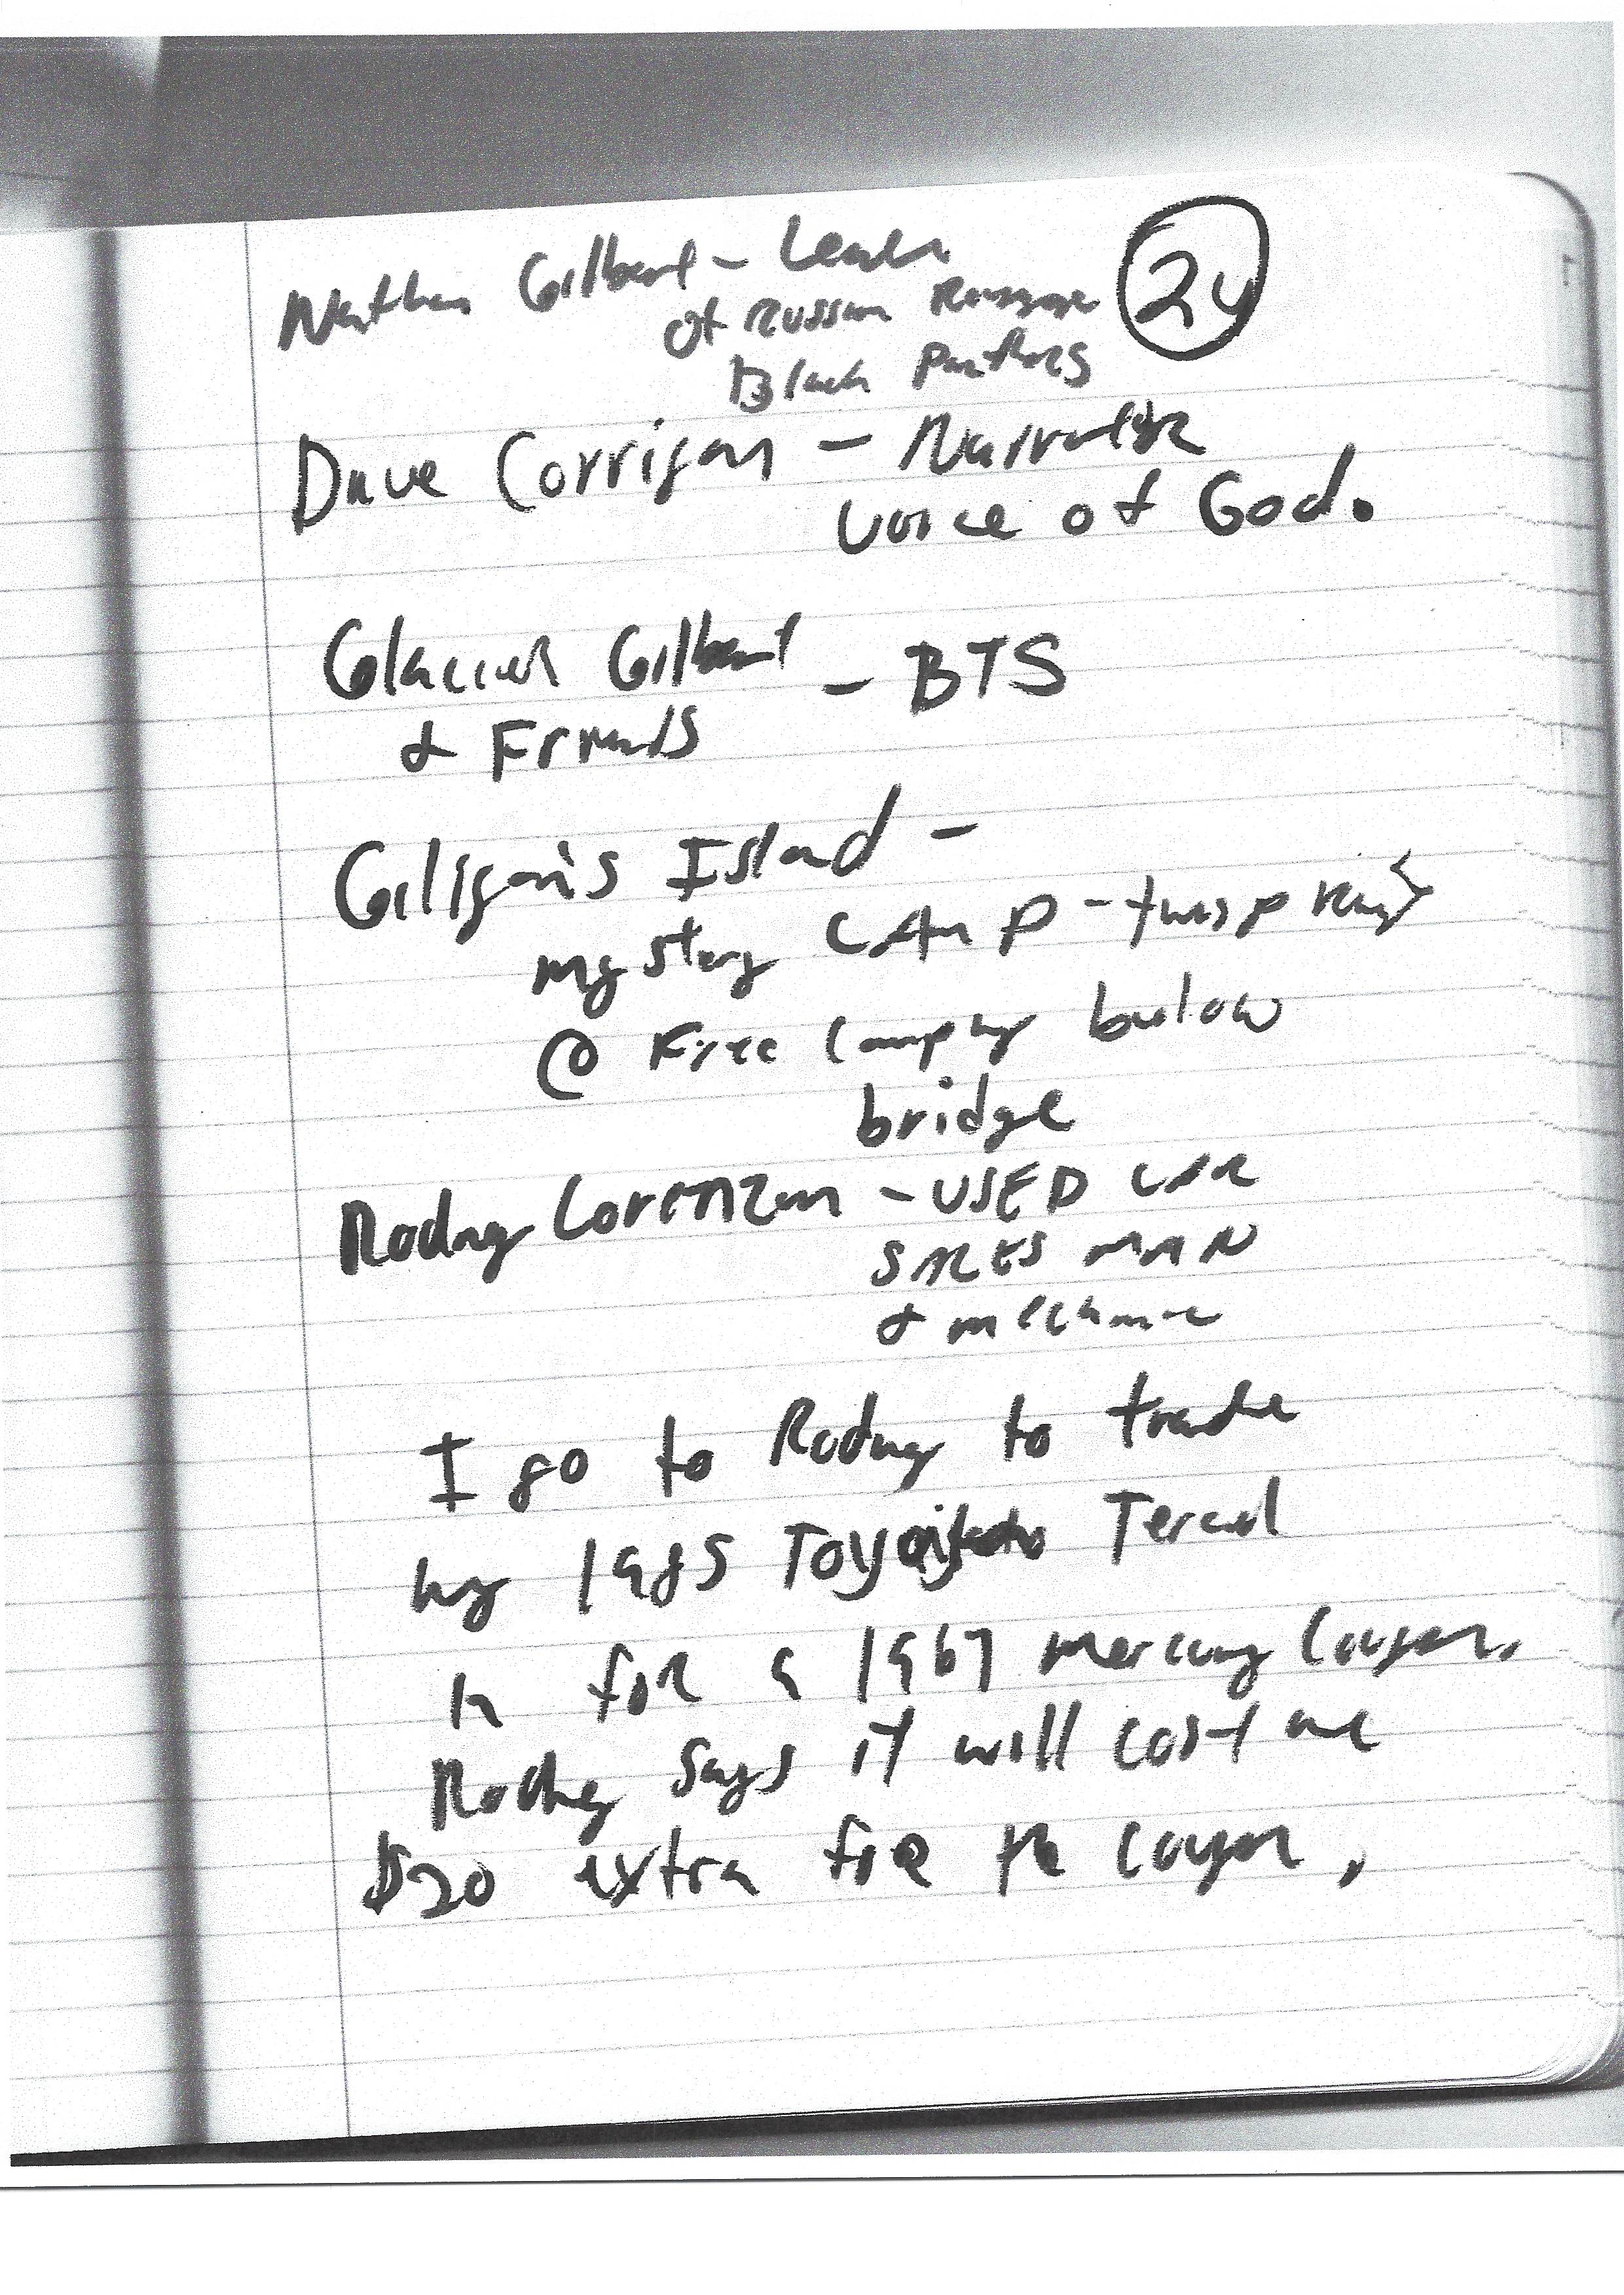 Nathan Gilbert - Leader
24
of Russian
Black Panthers
Dave Corrigan - Narrator
Voice of God.
Glacier Gilbert - BTS
& Friends
Gilligan's Island -
mystery CAMP -
@ Free Camping below
bridge
Rodney Lorenzen - USED CAR
SALES MAN
& mechanic
I go to Rodney to trade
my 1985 Toyota Tercel
in for a 1967 Mercury Cougar.
Rodney says it will cost me
$20 extra for the Cougar,